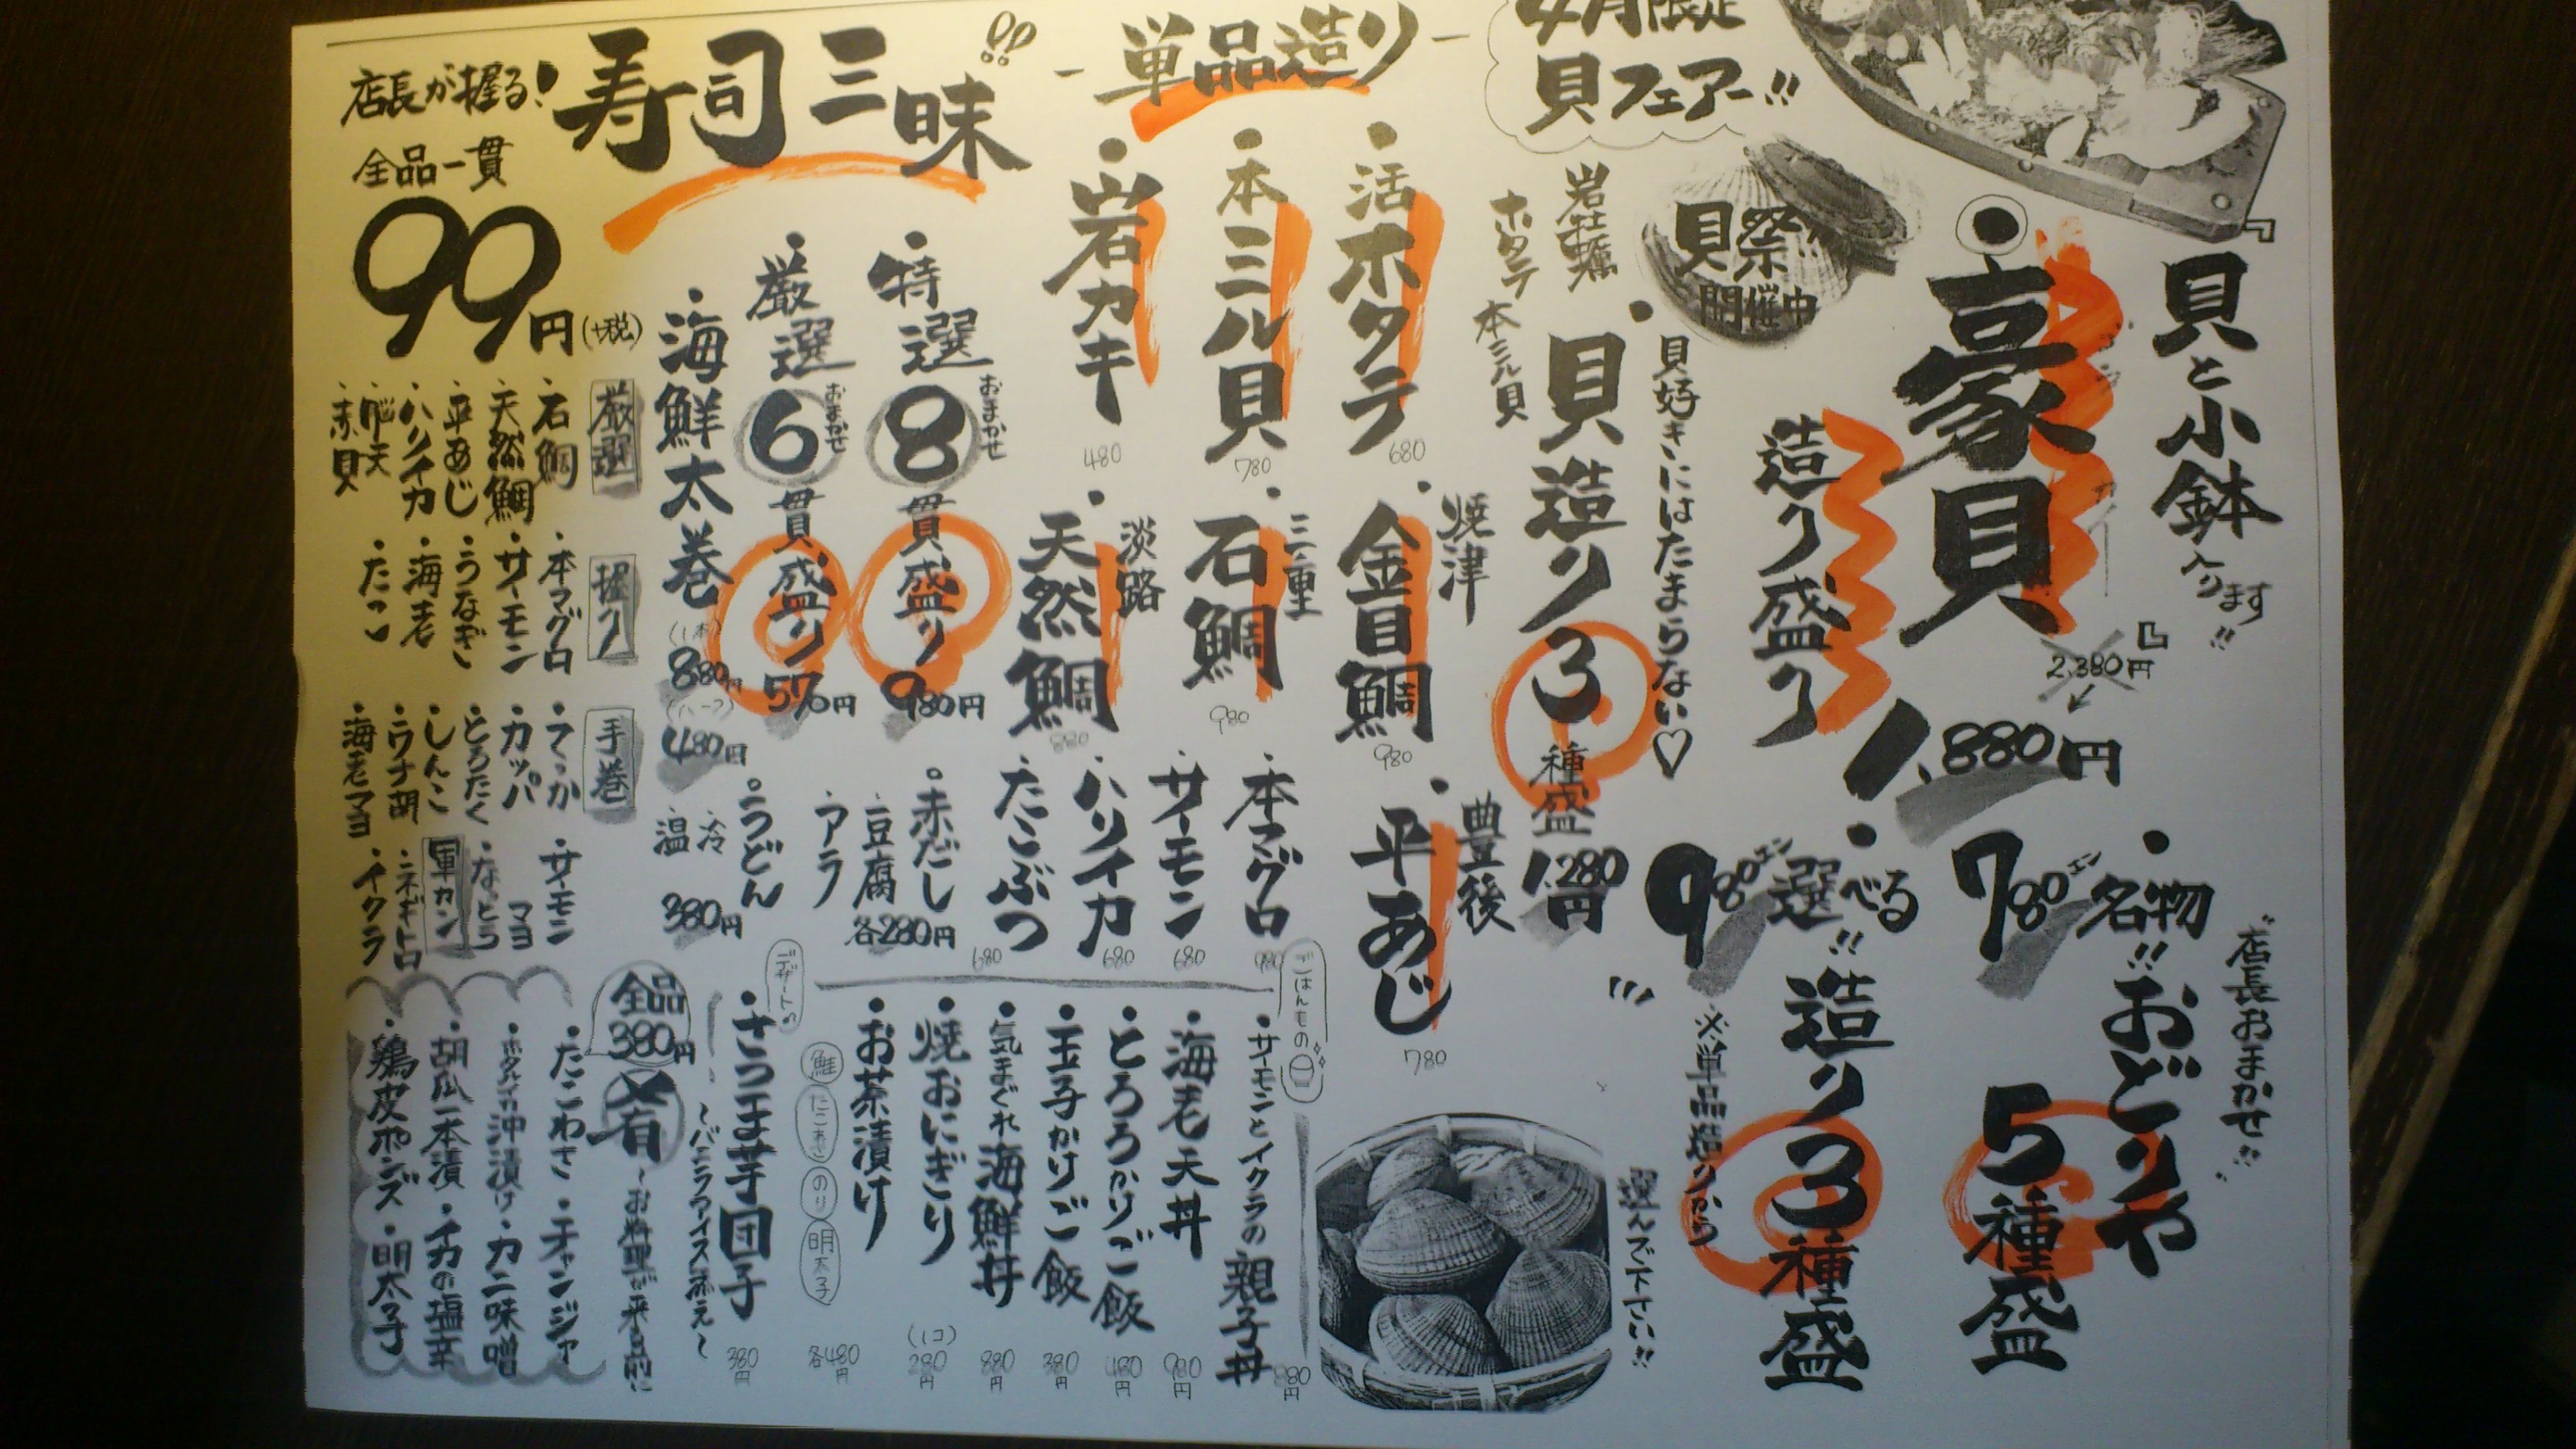 4月限定
貝フェアー!!
『貝と小鉢入ります!!』
豪貝
造り盛り
2,380円
1,880円
貝祭
開催中
貝好きにはたまらない♡
岩牡蠣
ホタテ
本ミル貝
貝造り3種盛
1,280円
"店長おまかせ!!"
名物!!おどりや
5種盛
780エン
選べる!!造り3種盛
980エン
※単品造りから
選んで下さい!!
単品造り
活ホタテ
680
本ミル貝
780
岩カキ
480
焼津
金目鯛
980
三重
石鯛
980
淡路
天然鯛
880
豊後
平あじ
780
本マグロ
980
サーモン
680
ハリイカ
680
たこぶつ
680
ごはんもの
サーモンとイクラの親子丼
880円
海老天丼
980円
とろろかけご飯
480円
玉子かけご飯
380円
気まぐれ海鮮丼
880円
焼おにぎり
(1コ)
280円
お茶漬け
鮭
たこわさ
のり
明太子
各480円
デザート
さつま芋団子
~バニラアイス添え~
380円
店長が握る!
寿司三昧!!
全品一貫
99円(+税)
特選
おまかせ
8貫盛り
980円
厳選
おまかせ
6貫盛り
576円
海鮮太巻
(1本)
880円
(ハーフ)
480円
赤だし
豆腐
アラ
各280円
うどん
冷
温
380円
厳選
石鯛
天然鯛
平あじ
ハリイカ
赤貝
握り
本マグロ
サーモン
うなぎ
海老
たこ
手巻
てっか
カッパ
とろたく
しんこ
ウナ胡
海老マヨ
サーモンマヨ
なっとう
軍カン
ネギトロ
イクラ
全品
380円
~お料理が来る前に
たこわさ
チャンジャ
ホタルイカ沖漬け
カニ味噌
胡瓜一本漬
イカの塩辛
鶏皮ポンズ
明太子